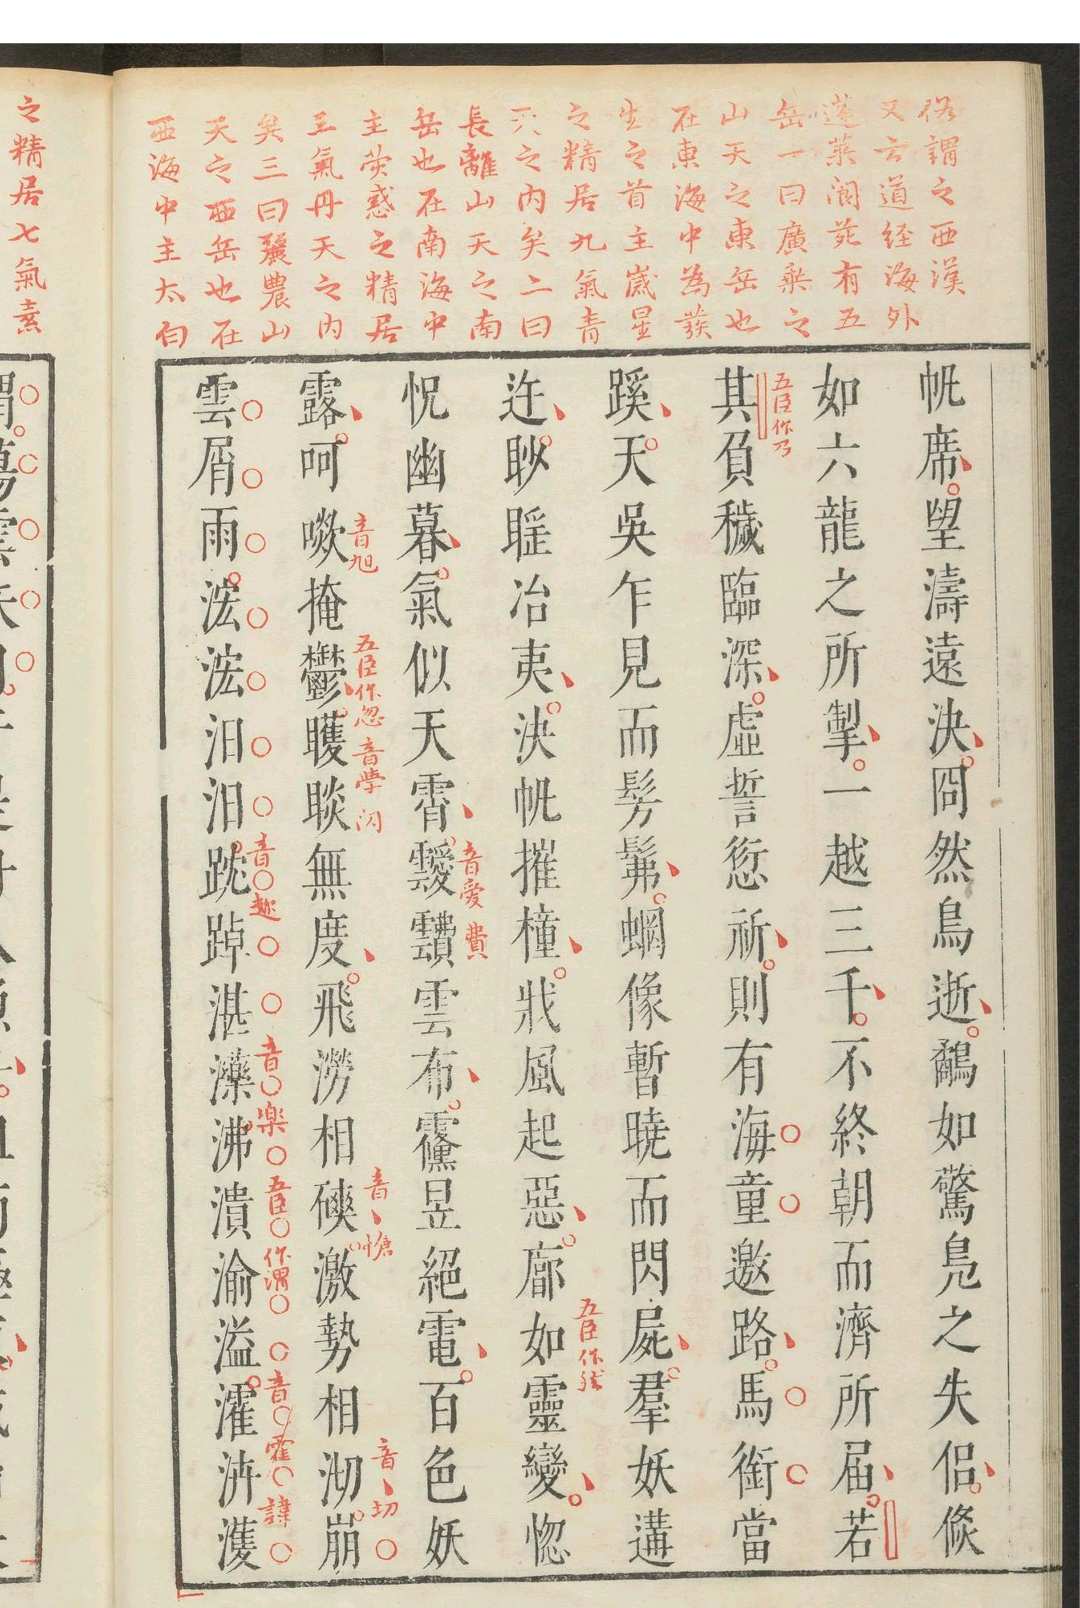 俗謂之西漢
又云道経海外
蓬萊閬苑有五
岳一曰廣桒之
山天之東岳也
在東海中為發
生之首主歲星
之精居九氣青
天之內矣二曰
長離山天之南
岳也在南海中
主熒惑之精居
三氣丹天之內
矣三曰麗農山
天之西岳也在
西海中主太白
帆席望濤遠決冏然鳥逝鷸如驚鳧之失侶倏
如六龍之所掣一越三千不終朝而濟所届若
五臣作乃
其負穢臨深虛誓愆祈則有海童邀路馬銜當
蹊天吳乍見而髣髴蝄像暫曉而閃屍羣妖遘
五臣作狀
迕眇䁘冶夷決帆摧橦戕風起惡廓如靈變惚
怳幽暮氣似天霄靉靅雲布靃昱絕電百色妖
音愛 費
露呵㗵掩鬱矆睒無度飛澇相磢激勢相沏崩
音旭 五臣作忽 音學 閃 音愴 音切
雲屑雨浤浤汩汩䟢踔湛濼沸潰渝溢濯泋濩
音趂 音樂 五臣作渭 音霍 諱
之精居七氣素